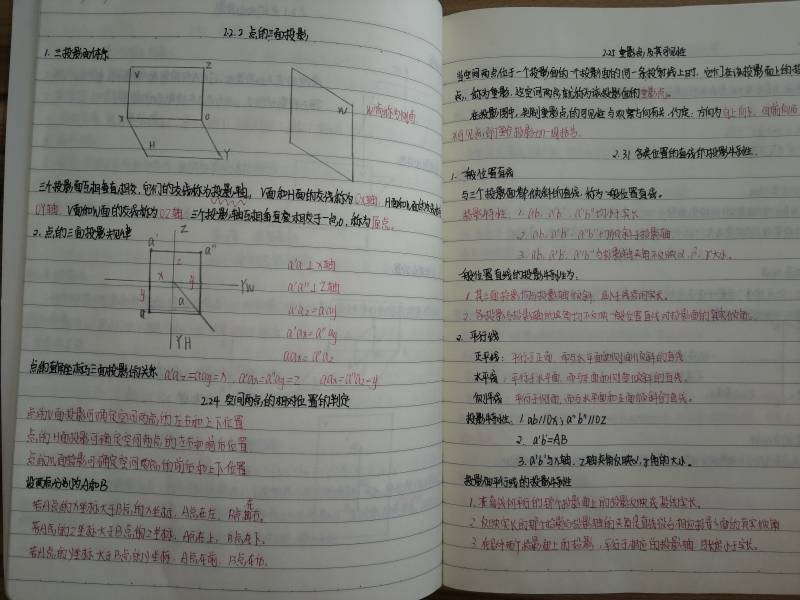 2.2.3 点的三面投影
1. 三投影面体系
V
Z
X
O
H
Y
W
W面称为侧面
三个投影面互相垂直相交,它们的交线称为投影轴, V面和H面的交线称为OX轴, H面和W面的交线称为
OY轴, V面和W面的交线称为OZ轴, 三个投影轴互相垂直
相交于一点O,称为原点。
2. 点的三面投影规律
Z
a'
a"
z
x
y
YW
y
a
YH
a'a⊥X轴
a'a"⊥Z轴
a'az=aay
a'ax=a"ay
aax=a"az
点的直角坐标与三面投影的关系 a'az=aay=x a'ax=a"ay=z aax=a"az=y
2.2.4 空间两点的相对位置的判定
点的V面投影可确定空间两点的左右和上下位置
点的H面投影可确定空间两点的左右和前后位置
点的W面投影可确定空间两点的前后和上下位置
设两点分别为A和B
若A点的X坐标大于B点的X坐标, A点在左, B点在右。
若A点的Z坐标大于B点的Z坐标, A点在上, B点在下。
若A点的Y坐标大于B点的Y坐标, A点在前, B点在后。
2.2.5 重影点及其可见性
当空间两点位于一个投影面的一个投影面的同一条投射线上时, 它们在该投影面上的投
点, 称为重影, 这空间两点就称为该投影面的重影点。
在投影图中, 判别重影点的可见性与观察方向有关,约定, 方向为自上向下、自前向后
2.3.1 各类位置的直线的投影特性
1. 一般位置直线
与三个投影面都倾斜的直线, 称为一般位置直线。
投影特性: 1. ab、a'b'、a"b"均小于实长
2. ab、a'b'、a"b"均倾斜于投影轴
3. ab、a'b'、a"b"与投影轴夹角不反映α、β、γ大小。
一般位置直线的投影特性为:
1. 其三面投影均与投影轴倾斜, 且小于线段的实长。
2. 各投影与投影轴的夹角均不反映一般位置直线对投影面的真实倾角。
2. 平行线
正平线: 平行于正面, 而与水平面和侧面倾斜的直线
水平线: 平行于水平面, 而与正面和侧面倾斜的直线。
侧平线: 平行于侧面, 而与水平面和正面倾斜的直线。
投影特性: 1. ab//OX; a"b"//OZ
2. a'b'=AB
3. a'b'与X轴、Z轴夹角反映α、γ角的大小。
投影面平行线的投影特性
1. 在直线所平行的那个投影面上的投影反映线段实长。
2. 反映实长的那个投影与投影轴的夹角是直线段与相应投影面的真实倾角
3. 在另外两个投影面上的投影, 平行于相应的投影轴, 且长度小于实长。